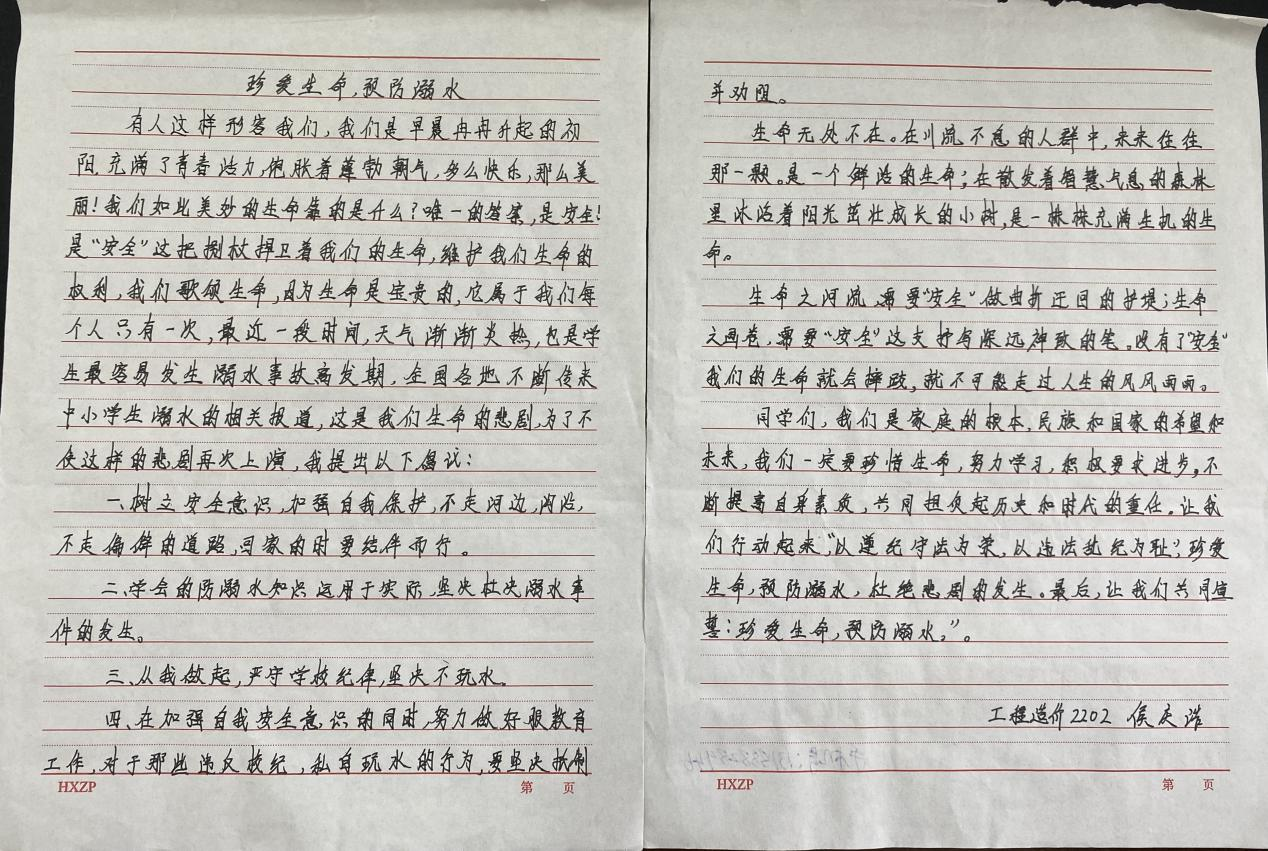 珍爱生命,预防溺水
有人这样形容我们,我们是早晨冉冉升起的初
阳,充满了青春活力,饱胀着蓬勃朝气,多么快乐,那么美
丽!我们如此美妙的生命靠的是什么?唯一的答案,是安全!
是“安全”这把捌杖捍卫着我们的生命,维护我们生命的
权利,我们歌颂生命,因为生命是宝贵的,它属于我们每
个人只有一次,最近一段时间,天气渐渐炎热,也是学
生最容易发生溺水事故高发期,全国各地不断传来
中小学生溺水的相关报道,这是我们生命的悲剧,为了不
使这样的悲剧再次上演,我提出以下倡议:
一、树立安全意识,加强自我保护,不走河边,沟沿,
不走偏僻的道路,回家的时要结伴而行。
二、学会的防溺水知识运用于实际,坚决杜决溺水事
件的发生。
三、从我做起,严守学校纪律,坚决不玩水。
四、在加强自我安全意识的同时,努力做好服教育
工作,对于那些违反校纪,私自玩水的行为,要坚决抵制
HXZP 第 页
并劝阻。
生命无处不在。在川流不息的人群中,来来往往
那一颗。是一个鲜活的生命;在散发着智慧气息的森林
里沐浴着阳光茁壮成长的小树,是一株株充满生机的生
命。
生命之河流,需要“安全”做曲折迂回的护堤;生命
之画卷,需要“安全”这支抒写深远神致的笔。没有了“安全”
我们的生命就会摔跤,就不可能走过人生的风风雨雨。
同学们,我们是家庭的根本,民族和国家的希望和
未来,我们一定要珍惜生命,努力学习,积极要求进步,不
断提高自身素质,共同担负起历史和时代的重任。让我
们行动起来,“以遵纪守法为荣,以违法乱纪为耻”,珍爱
生命,预防溺水,杜绝悲剧的发生。最后,让我们共同宣
誓:珍爱生命,预防溺水,”。
工程造价2202 侯庆浩
HXZP 第 页